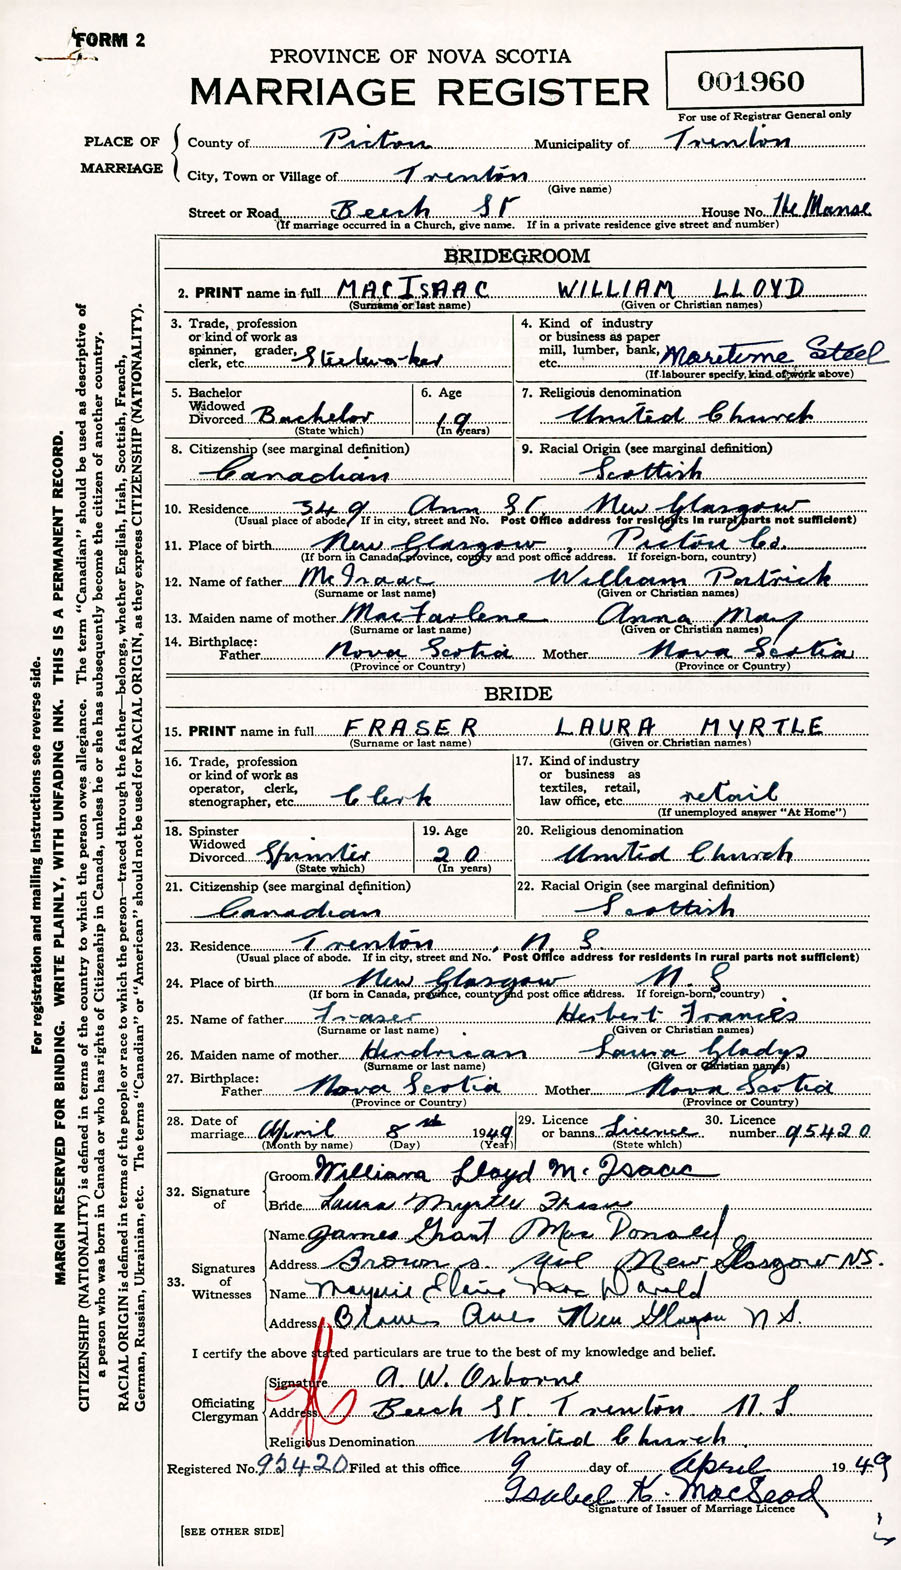 FORM 2
PROVINCE OF NOVA SCOTIA
MARRIAGE REGISTER
001960
For use of Registrar General only
PLACE OF MARRIAGE
County of Pictou Municipality of Trenton
City, Town or Village of Trenton
(Give name)
Street or Road Beech St House No. The Manse
(If marriage occurred in a Church, give name. If in a private residence give street and number)
BRIDEGROOM
2. PRINT name in full MACISAAC WILLIAM LLOYD
(Surname or last name) (Given or Christian names)
3. Trade, profession or kind of work as spinner, grader, clerk, etc. Steelworker
4. Kind of industry or business as paper mill, lumber, bank, etc. Maritime Steel
(If labourer specify, kind of work above)
5. Bachelor Widowed Divorced Bachelor
(State which)
6. Age 19
(In years)
7. Religious denomination
United Church
8. Citizenship (see marginal definition)
Canadian
9. Racial Origin (see marginal definition)
Scottish
10. Residence 349 Ann St. New Glasgow
(Usual place of abode. If in city, street and No. Post Office address for residents in rural parts not sufficient)
11. Place of birth New Glasgow, Pictou Co.
(If born in Canada, province, county and post office address. If foreign-born, country)
12. Name of father McIsaac William Patrick
(Surname or last name) (Given or Christian names)
13. Maiden name of mother MacFarlene Anna May
(Surname or last name) (Given or Christian names)
14. Birthplace:
Father Nova Scotia Mother Nova Scotia
(Province or Country) (Province or Country)
BRIDE
15. PRINT name in full FRASER LAURA MYRTLE
(Surname or last name) (Given or Christian names)
16. Trade, profession or kind of work as operator, clerk, stenographer, etc. Clerk
17. Kind of industry or business as textiles, retail, law office, etc. retail
(If unemployed answer "At Home")
18. Spinster Widowed Divorced Spinster
(State which)
19. Age 20
(In years)
20. Religious denomination
United Church
21. Citizenship (see marginal definition)
Canadian
22. Racial Origin (see marginal definition)
Scottish
23. Residence Trenton, N. S.
(Usual place of abode. If in city, street and No. Post Office address for residents in rural parts not sufficient)
24. Place of birth New Glasgow N. S
(If born in Canada, province, county and post office address. If foreign-born, country)
25. Name of father Fraser Herbert Francis
(Surname or last name) (Given or Christian names)
26. Maiden name of mother Laura Gladys
(Surname or last name) (Given or Christian names)
27. Birthplace:
Father Nova Scotia Mother Nova Scotia
(Province or Country) (Province or Country)
28. Date of marriage April 8th 1949
(Month by name) (Day) (Year)
29. Licence or banns Licence
(State which)
30. Licence number 95420
32. Signature of
Groom William Lloyd McIsaac
Bride Laura Myrtle Fraser
33. Signatures of Witnesses
Name James Grant MacDonald
Address Brown's New Glasgow N.S.
Name Elaine MacDonald
Address New Glasgow N S.
I certify the above stated particulars are true to the best of my knowledge and belief.
Officiating Clergyman
Signature A. W. Osborne
Address Beech St. Trenton N. S
Religious Denomination United Church.
Registered No. 95420 Filed at this office 9 day of April 1949
Isabel K. MacLeod
Signature of Issuer of Marriage Licence
[SEE OTHER SIDE]
For registration and mailing instructions see reverse side.
MARGIN RESERVED FOR BINDING. WRITE PLAINLY, WITH UNFADING INK. THIS IS A PERMANENT RECORD.
CITIZENSHIP (NATIONALITY) is defined in terms of the country to which the person owes allegiance. The term "Canadian" should be used as descriptive of
a person who was born in Canada or who has rights of Citizenship in Canada, unless he or she has subsequently become the citizen of another country.
RACIAL ORIGIN is defined in terms of the people or race to which the person—traced through the father—belongs, whether English, Irish, Scottish, French,
German, Russian, Ukrainian, etc. The terms "Canadian" or "American" should not be used for RACIAL ORIGIN, as they express CITIZENSHIP (NATIONALITY).